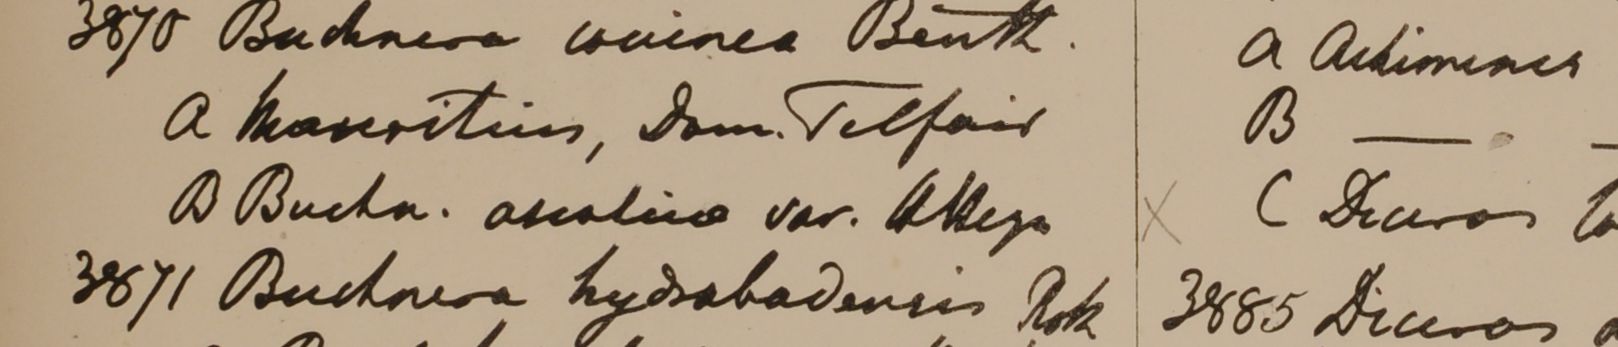 3870 Buchnera coccinea Benth.
A Mauritius, Dom. Telfair
B Buchn. asiatica var.
3871 Buchnera hydrabadensis Roth
A Achimenes
B — —
X C Diceros
3885 Diceros